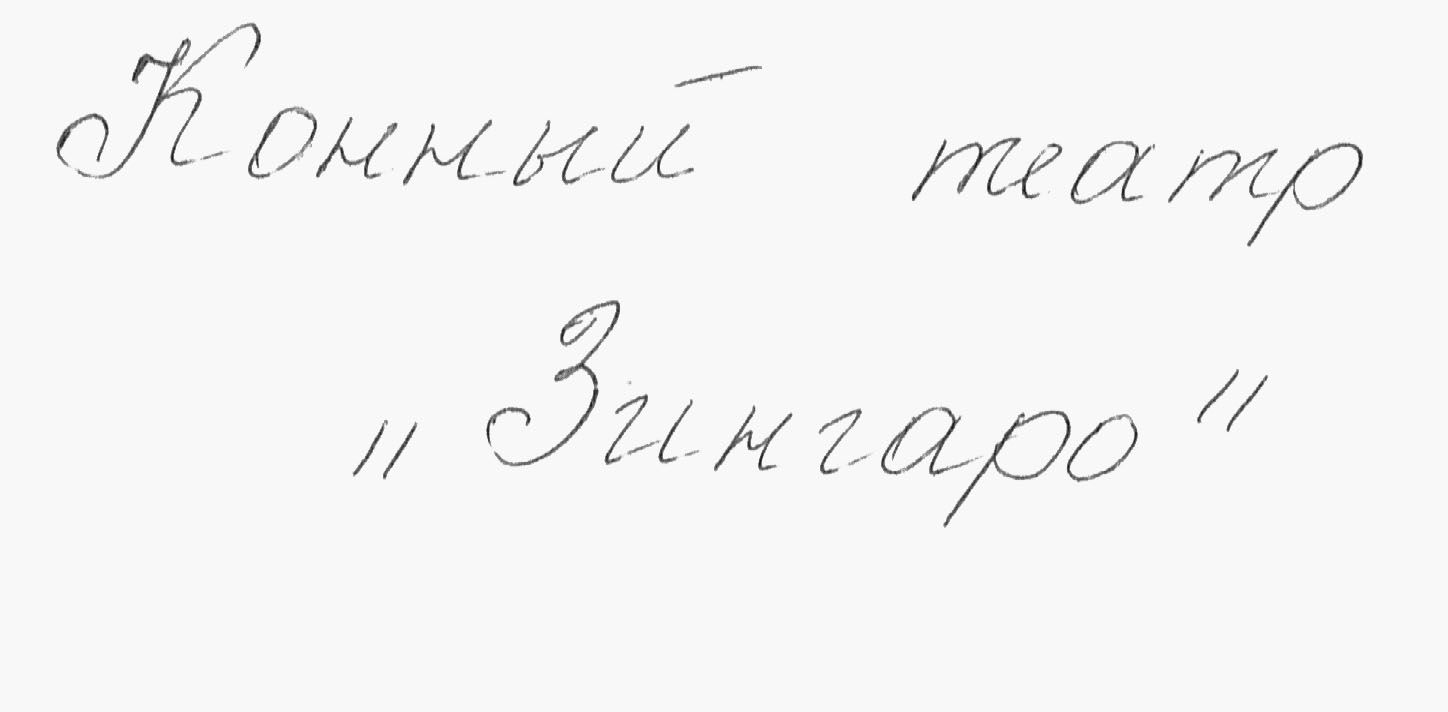 Конный театр
„Зингаро"